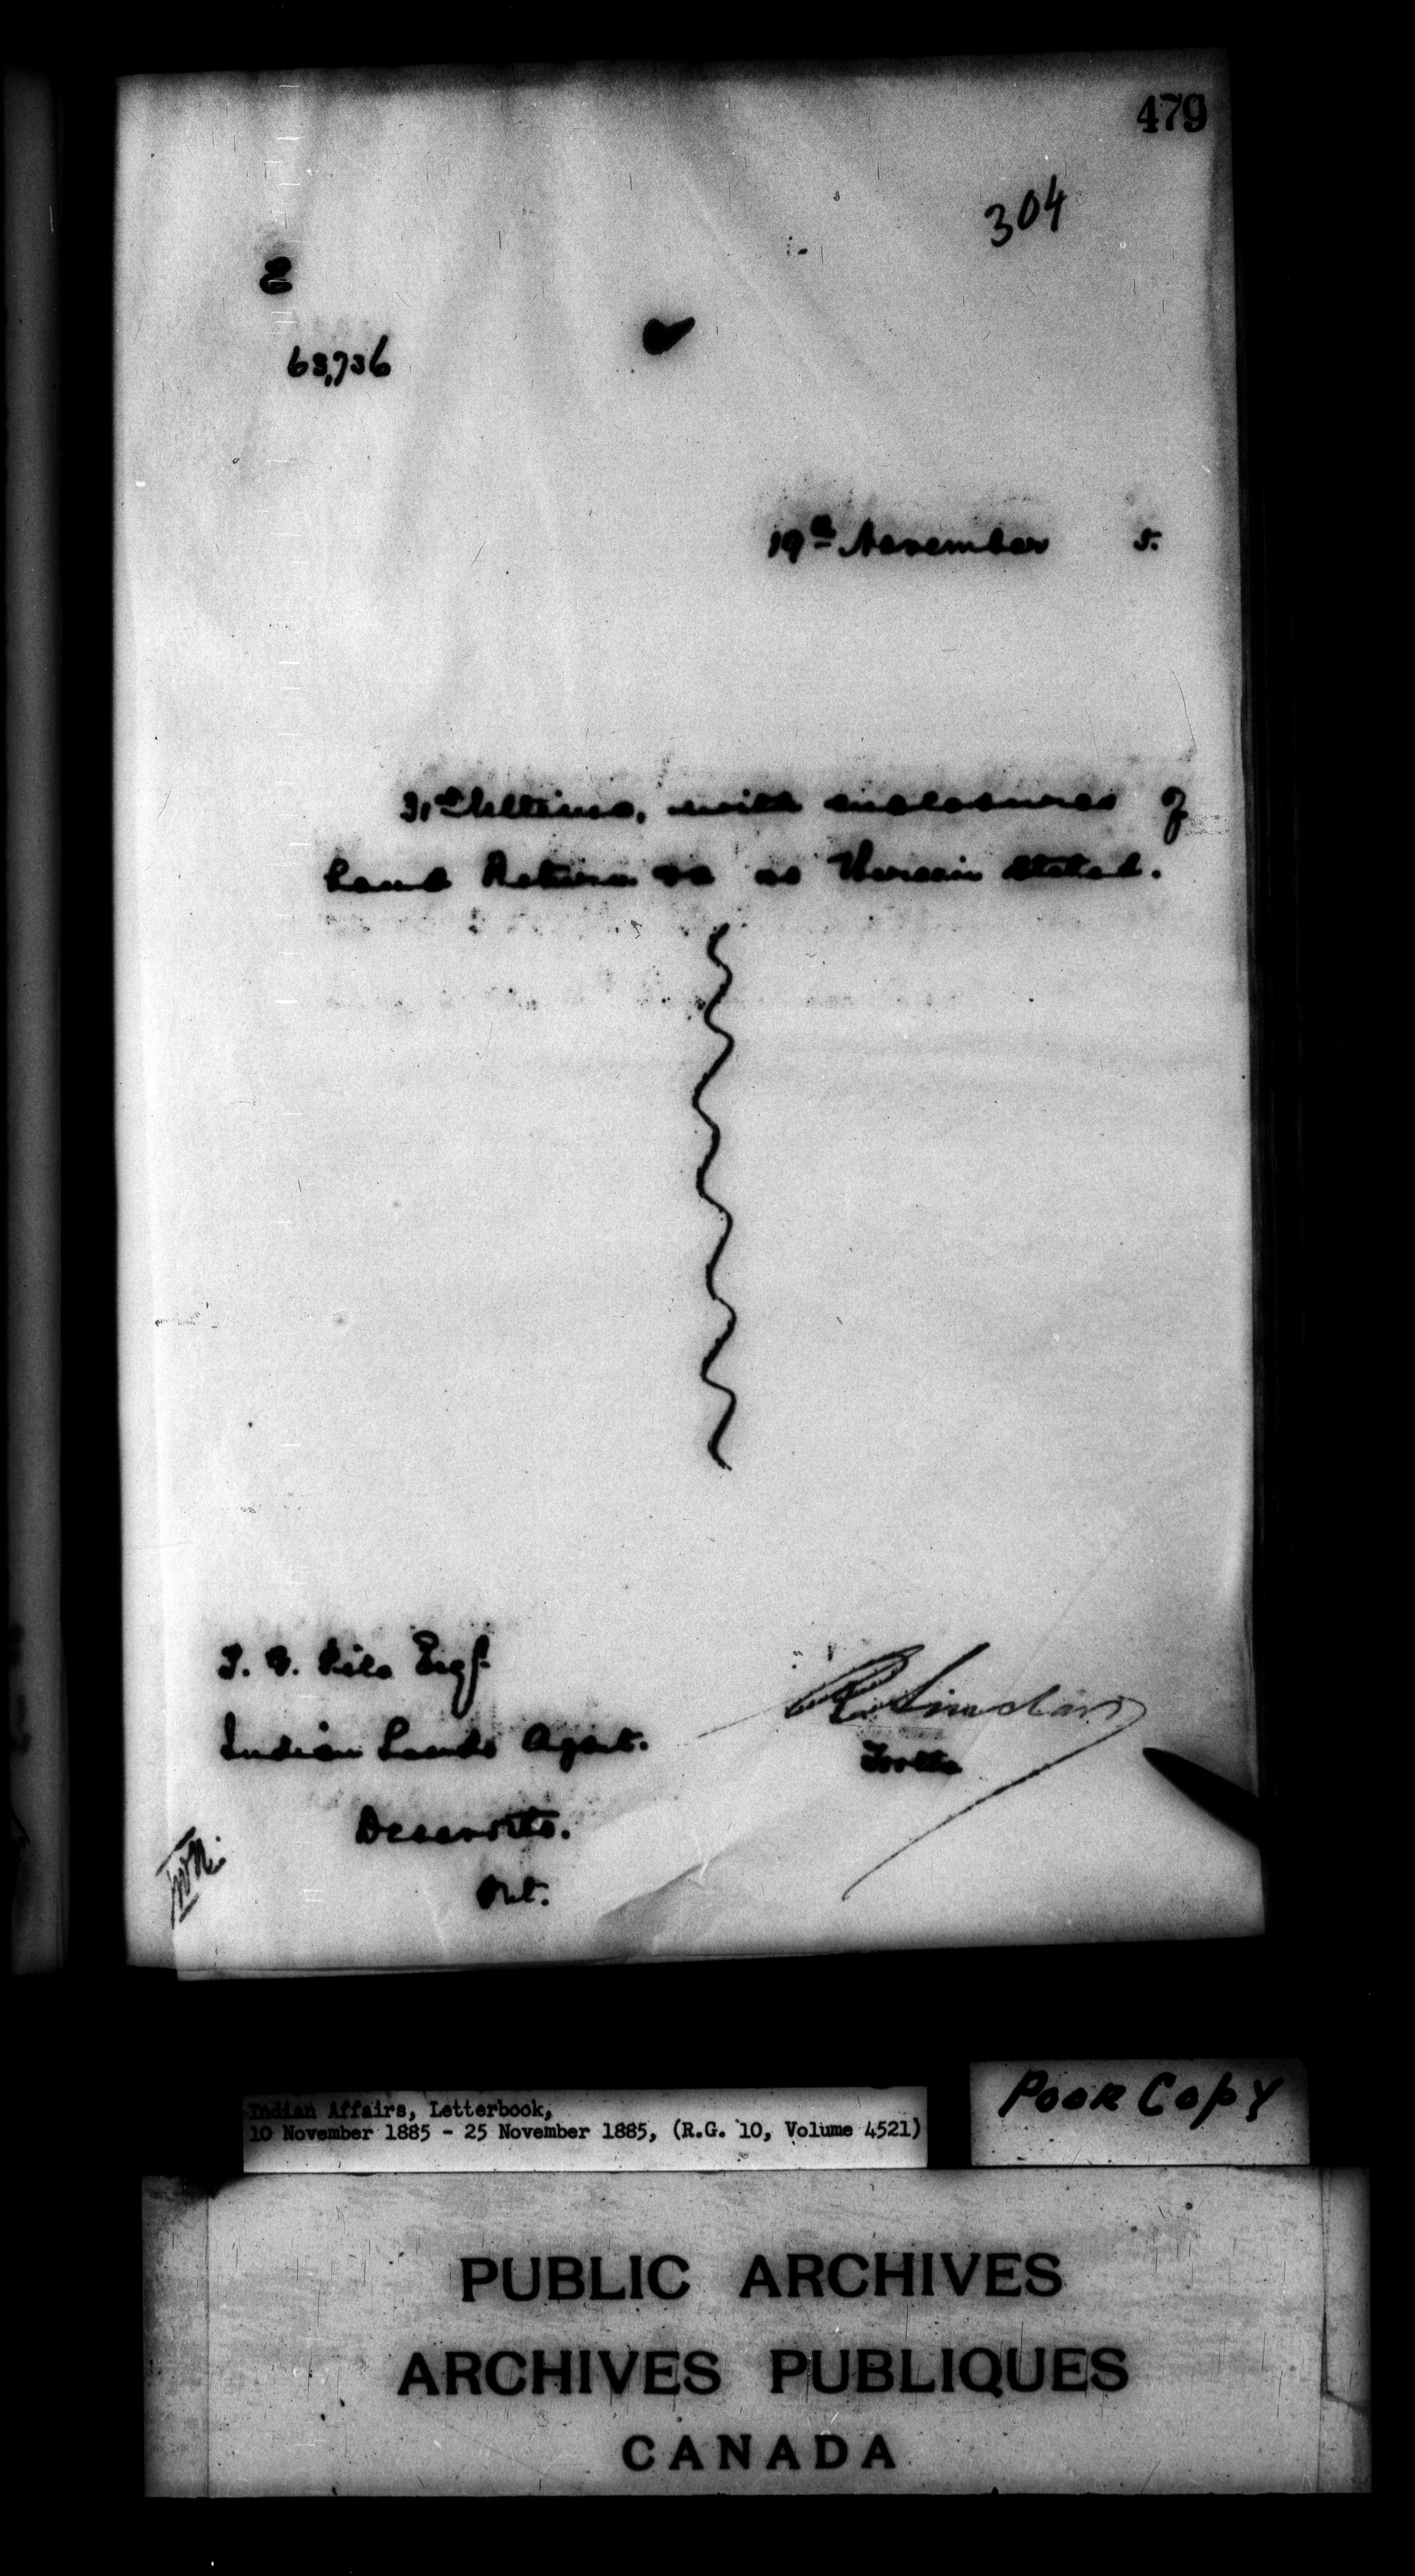 479
304
E
63,736
19th November 5.
31st Ultimo, with enclosures of
Land Return &c as therein stated.
Esq
Indian Lands Agent.
R Sinclair
Deseronto.
Ont.
Indian Affairs, Letterbook,
10 November 1885 - 25 November 1885, (R.G. 10, Volume 4521)
POOR COPY
PUBLIC ARCHIVES
ARCHIVES PUBLIQUES
CANADA